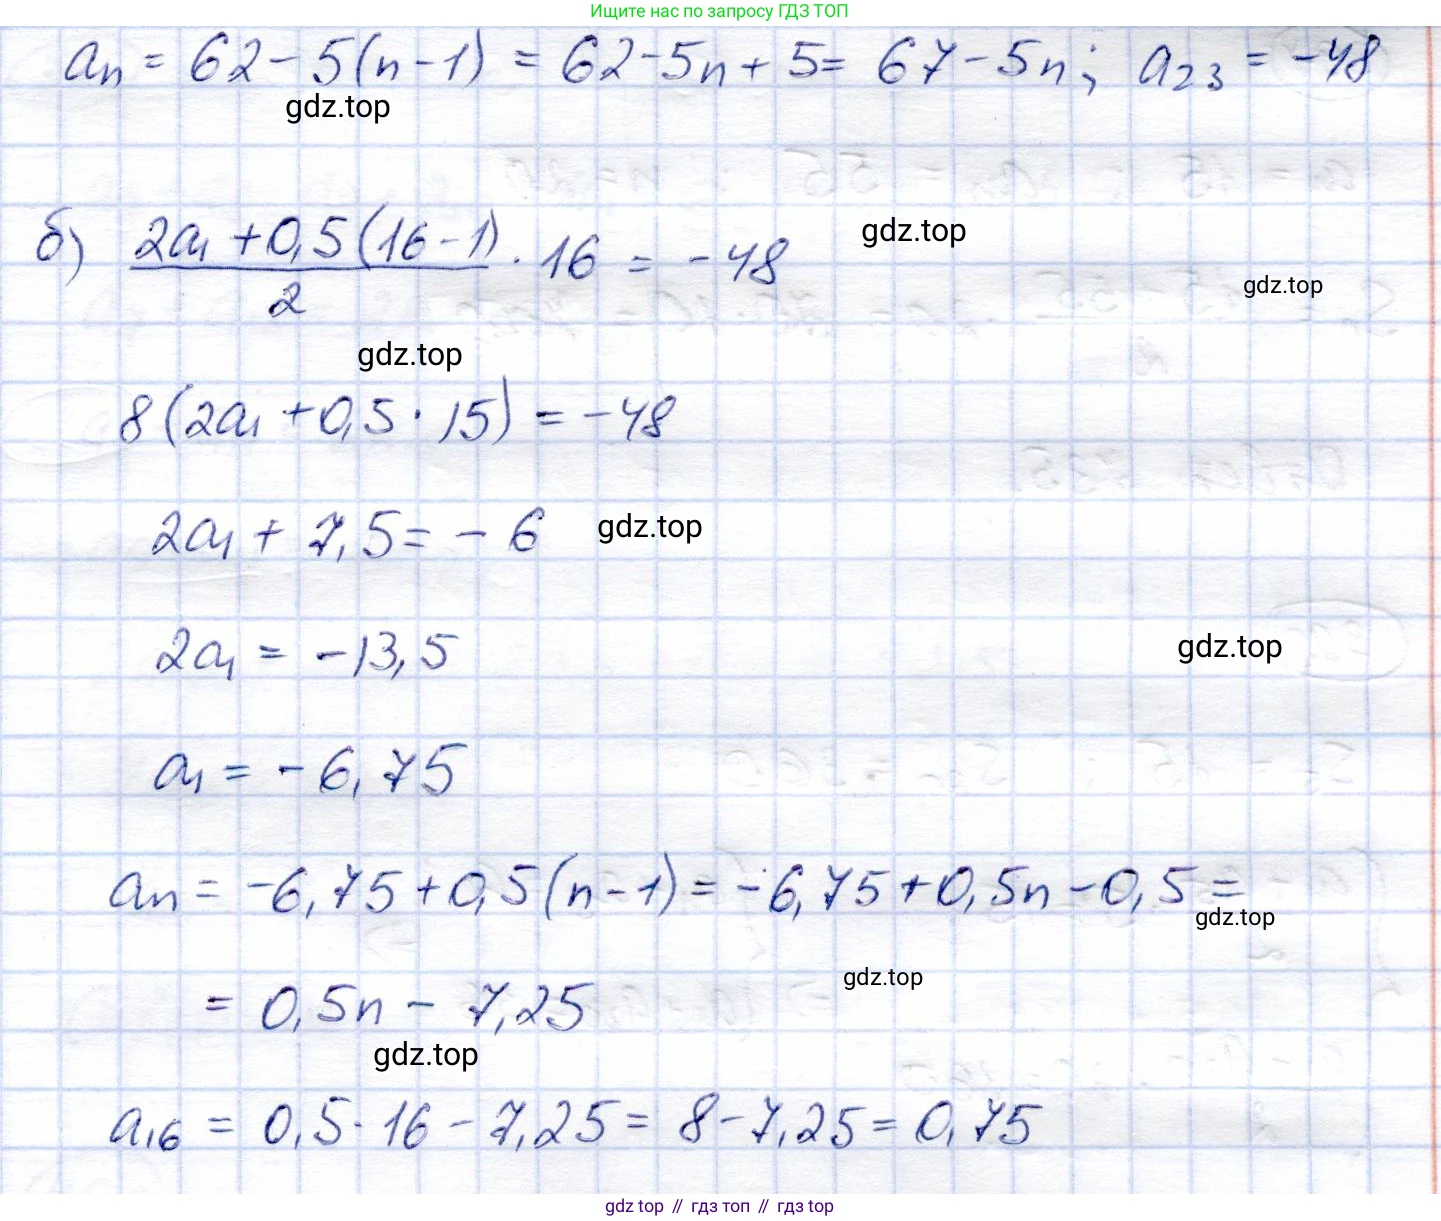 Ищите нас по запросу ГДЗ ТОП
aₙ = 62 - 5(n - 1) = 62 - 5n + 5 = 67 - 5n; a₂₃ = -48
gdz.top
б) (2a₁ + 0,5(16 - 1))/2 · 16 = -48
gdz.top
gdz.top
gdz.top
8(2a₁ + 0,5 · 15) = -48
2a₁ + 7,5 = - 6
gdz.top
2a₁ = -13,5
gdz.top
a₁ = -6,75
aₙ = -6,75 + 0,5(n - 1) = -6,75 + 0,5n - 0,5 =
gdz.top
gdz.top
= 0,5n - 7,25
gdz.top
a₁₆ = 0,5 · 16 - 7,25 = 8 - 7,25 = 0,75
gdz top // гдз топ // gdz top